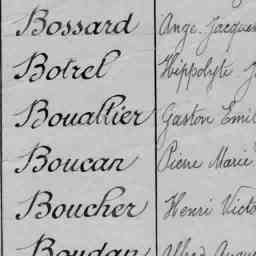 Bossard Ange Jacques
Botrel Hippolyte J
Bouallier Gaston Emil
Boucan Pierre Marie
Boucher Henri Victo
Boudan Alfred Augus